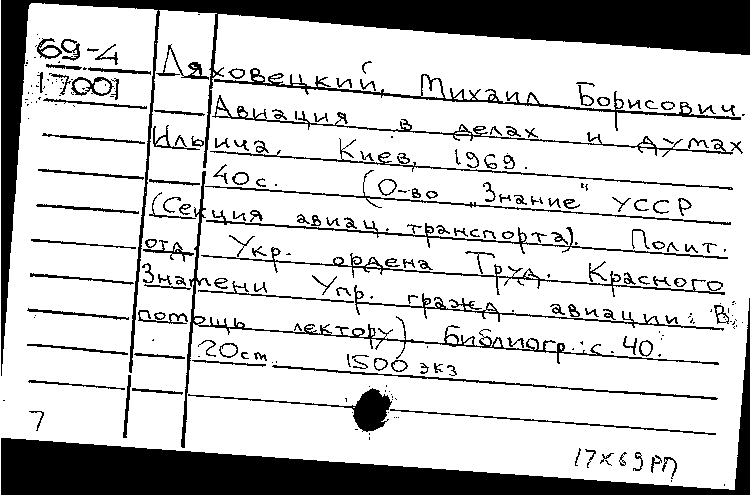 69-4
17001
Ляховецкий, Михаил Борисович.
Авиация в делах и думах
Ильича. Киев, 1969.
40 с. (О-во „Знание" УССР
(Секция авиац. транспорта). Полит.
отд. Укр. ордена Труд. Красного
Знамени Упр. гражд. авиации. В
помощь лектору). Библиогр.: с. 40.
20 см. 1500 экз
7
17 X 69 РП